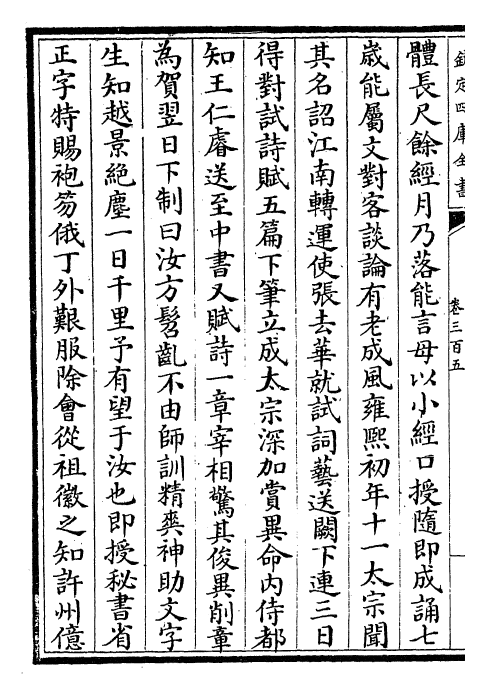 欽定四庫全書
卷三百五
體長尺餘經月乃落能言母以小經口授隨即成誦七
歳能屬文對客談論有老成風雍熙初年十一太宗聞
其名詔江南轉運使張去華就試詞藝送闕下連三日
得對試詩賦五篇下筆立成太宗深加賞異命内侍都
知王仁睿送至中書又賦詩一章宰相驚其俊異削章
為賀翌日下制曰汝方髫齓不由師訓精爽神助文字
生知越景絶塵一日千里予有望于汝也即授秘書省
正字特賜袍笏俄丁外艱服除會從祖徽之知許州億